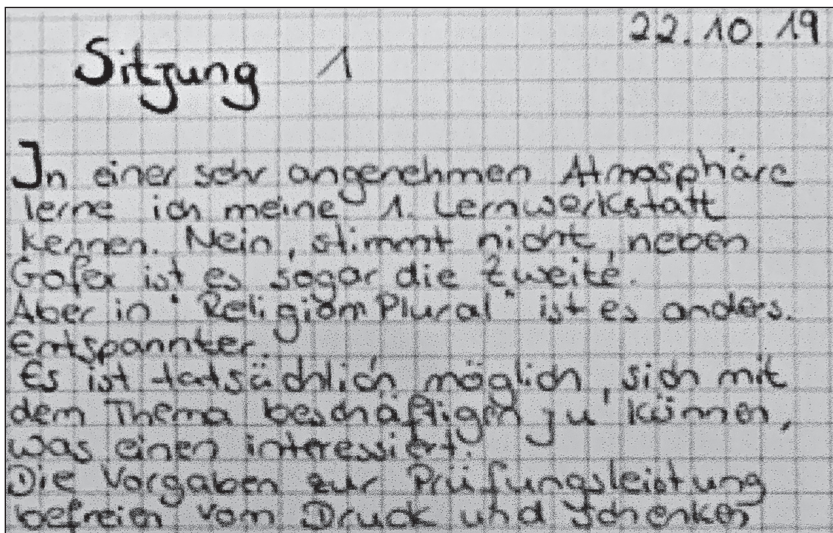 22.10.19
Sitzung 1
In einer sehr angenehmen Atmosphäre
lerne ich meine 1. Lernwerkstatt
kennen. Nein, stimmt nicht, neben
Gofex ist es sogar die zweite.
Aber in "ReligionPlural" ist es anders.
Entspannter.
Es ist tatsächlich möglich, sich mit
dem Thema beschäftigen zu können,
was einen interessiert.
Die Vorgaben zur Prüfungsleistung
befreien vom Druck und schenken